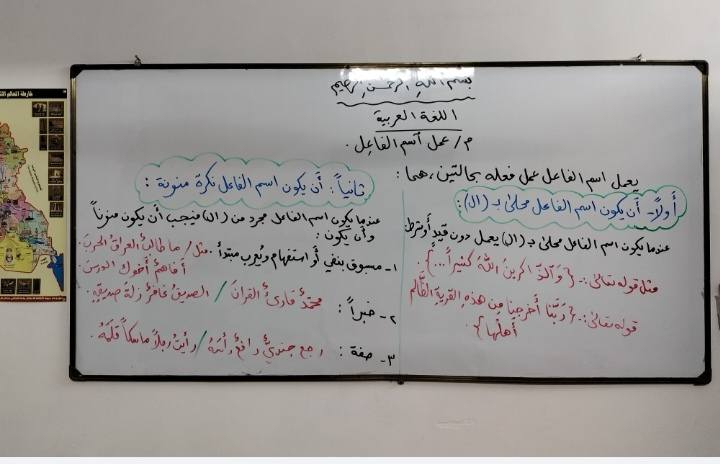 بسم الله الرحمن الرحيم
اللغة العربية
م/ عمل اسم الفاعل.
يعمل اسم الفاعل عمل فعله بحالتين، هما:
أولاً- أن يكون اسم الفاعل محلى بـ (ال):
عندما يكون اسم الفاعل محلى بـ (ال) يعمل دون قيدٍ أو شرط
مثل قوله تعالى:- {وَالذاكرينَ اللهَ كثيراً...}.
قوله تعالى:- {رَبَّنا أخرجنا من هذهِ القريةِ الظَّالمِ
أهلُها}.
ثانياً: أن يكون اسم الفاعل نكرة منونة:
عندما يكون اسم الفاعل مجرد من (ال) فيجب أن يكون منوناً
وأن يكون:
١- مسبوق بنفي أو استفهام ويُعرب مبتدأ. مثل/ ما طالبٌ العراقُ الحربَ.
أفاهمٌ أخوك الدرسَ.
٢- خبراً: محمدٌ قارئٌ القرآنَ / الصديقُ غافرٌ زلةَ صديقِهِ.
٣- صفة: رجع جنديٌّ رافعٌ رأسَهُ / رأيتُ رجلاً ماسكاً قلمَهُ.
خارطة العالم